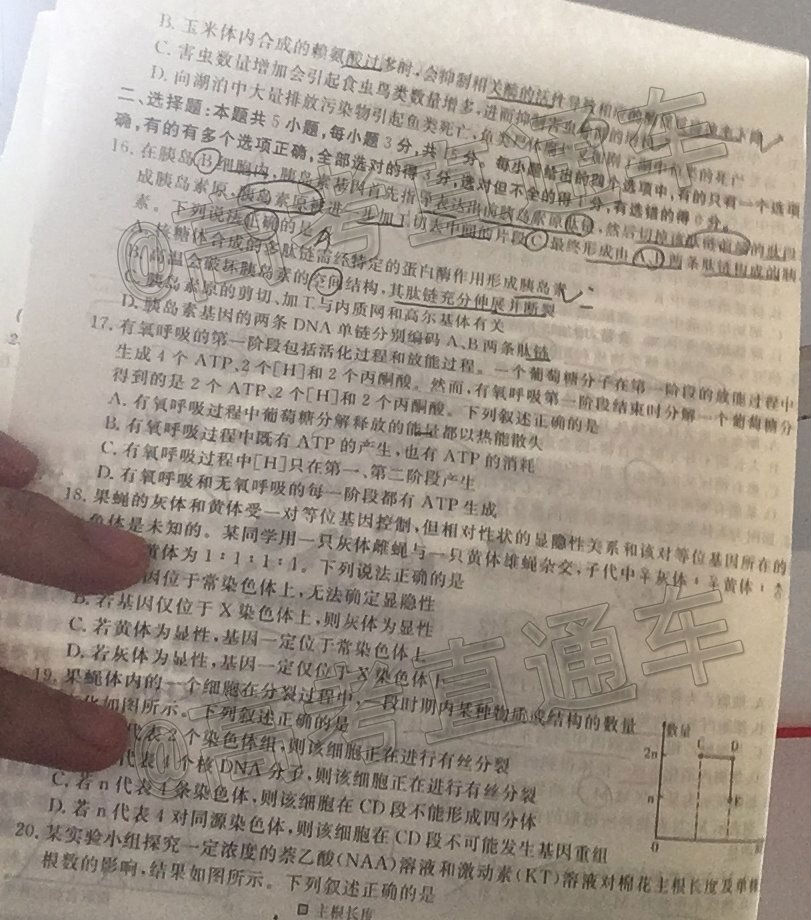 B. 玉米体内合成的赖氨酸过多时,会抑制相关酶的活性
C. 害虫数量增加会引起食虫鸟类数量增多,进而抑制害虫
D. 向湖泊中大量排放污染物引起鱼类死亡,鱼类
二、选择题:本题共5小题,每小题3分,共15分。每小题给出的四个选项中,有的只有一个选项正
确,有的有多个选项正确,全部选对的得3分,选对但不全的得1分,有选错的得0分。
16. 在胰岛B细胞内,胰岛素基因首先指导表达出前胰岛素原肽链,然后切掉该肽链
成胰岛素原,胰岛素原被进一步加工切去中间的片段C,最终形成由A、B两条肽链构成的胰
素。下列说法正确的是
A. 核糖体合成的多肽链需经特定的蛋白酶作用形成胰岛素
B. 高温会破坏胰岛素的空间结构,其肽链充分伸展并断裂
C. 胰岛素原的剪切、加工与内质网和高尔基体有关
D. 胰岛素基因的两条DNA单链分别编码A、B两条肽链
17. 有氧呼吸的第一阶段包括活化过程和放能过程。一个葡萄糖分子在第一阶段的放能过程中
生成4个ATP、2个[H]和2个丙酮酸。然而,有氧呼吸第一阶段结束时分解一个葡萄糖分
得到的是2个ATP、2个[H]和2个丙酮酸。下列叙述正确的是
A. 有氧呼吸过程中葡萄糖分解释放的能量都以热能散失
B. 有氧呼吸过程中既有ATP的产生,也有ATP的消耗
C. 有氧呼吸过程中[H]只在第一、第二阶段产生
D. 有氧呼吸和无氧呼吸的每一阶段都有ATP生成
18. 果蝇的灰体和黄体受一对等位基因控制,但相对性状的显隐性关系和该对等位基因所在的
色体是未知的。某同学用一只灰体雌蝇与一只黄体雄蝇杂交,子代中♀灰体:♀黄体:♂
黄体为1:1:1:1。下列说法正确的是
因位于常染色体上,无法确定显隐性
B. 若基因仅位于X染色体上,则灰体为显性
C. 若黄体为显性,基因一定位于常染色体上
D. 若灰体为显性,基因一定仅位于X染色体上
19. 果蝇体内的一个细胞在分裂过程中,一段时期内某种物质或结构的数量
化如图所示。下列叙述正确的是
代表2个染色体组,则该细胞正在进行有丝分裂
代表4个核DNA分子,则该细胞正在进行有丝分裂
C. 若n代表4条染色体,则该细胞在CD段不能形成四分体
D. 若n代表4对同源染色体,则该细胞在CD段不可能发生基因重组
数量
2n
C D
n
E
0
20. 某实验小组探究一定浓度的萘乙酸(NAA)溶液和激动素(KT)溶液对棉花主根长度及单株
根数的影响,结果如图所示。下列叙述正确的是
主根长度
@高考直通车
@高考直通车